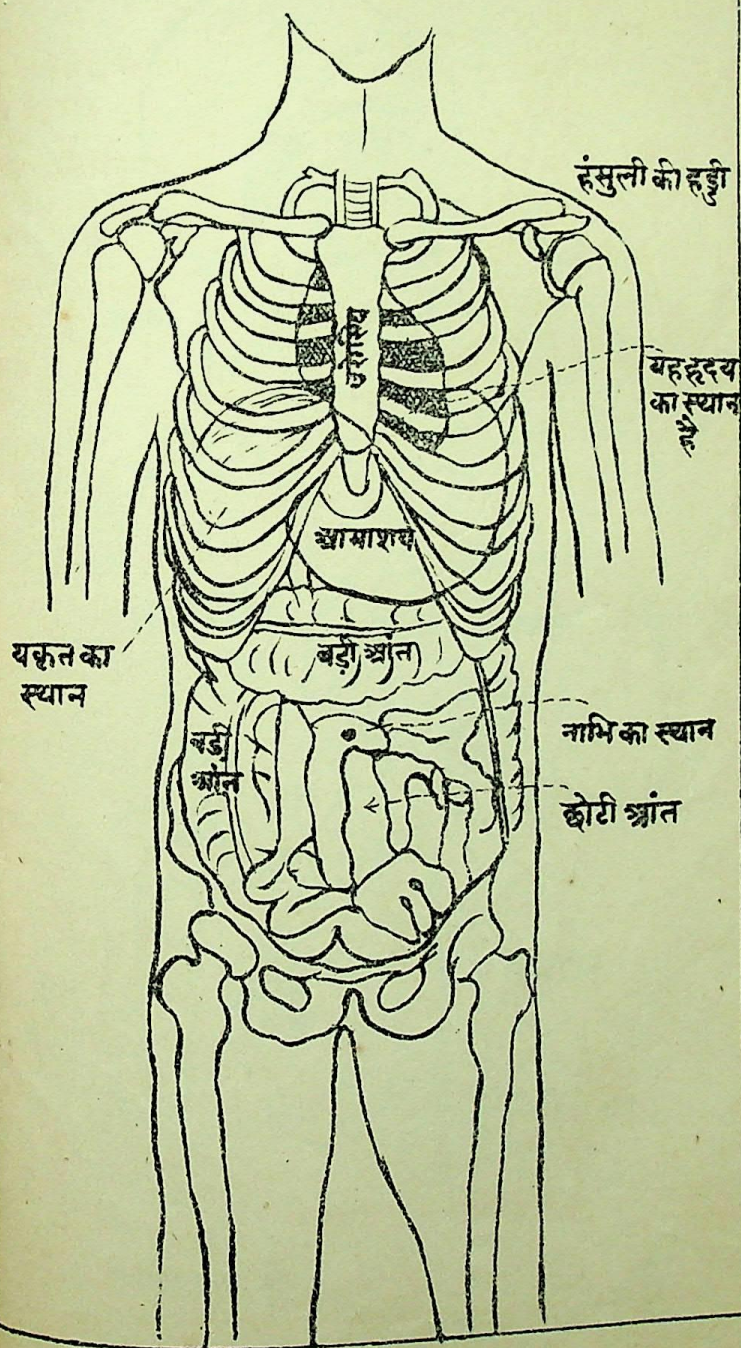 हंसुली की हड्डी
उरोस्थि
यह हृदय
का स्थान
है
आमाशय
बड़ी आंत
यकृत का
स्थान
बड़ी
आंत
नाभि का स्थान
छोटी आंत